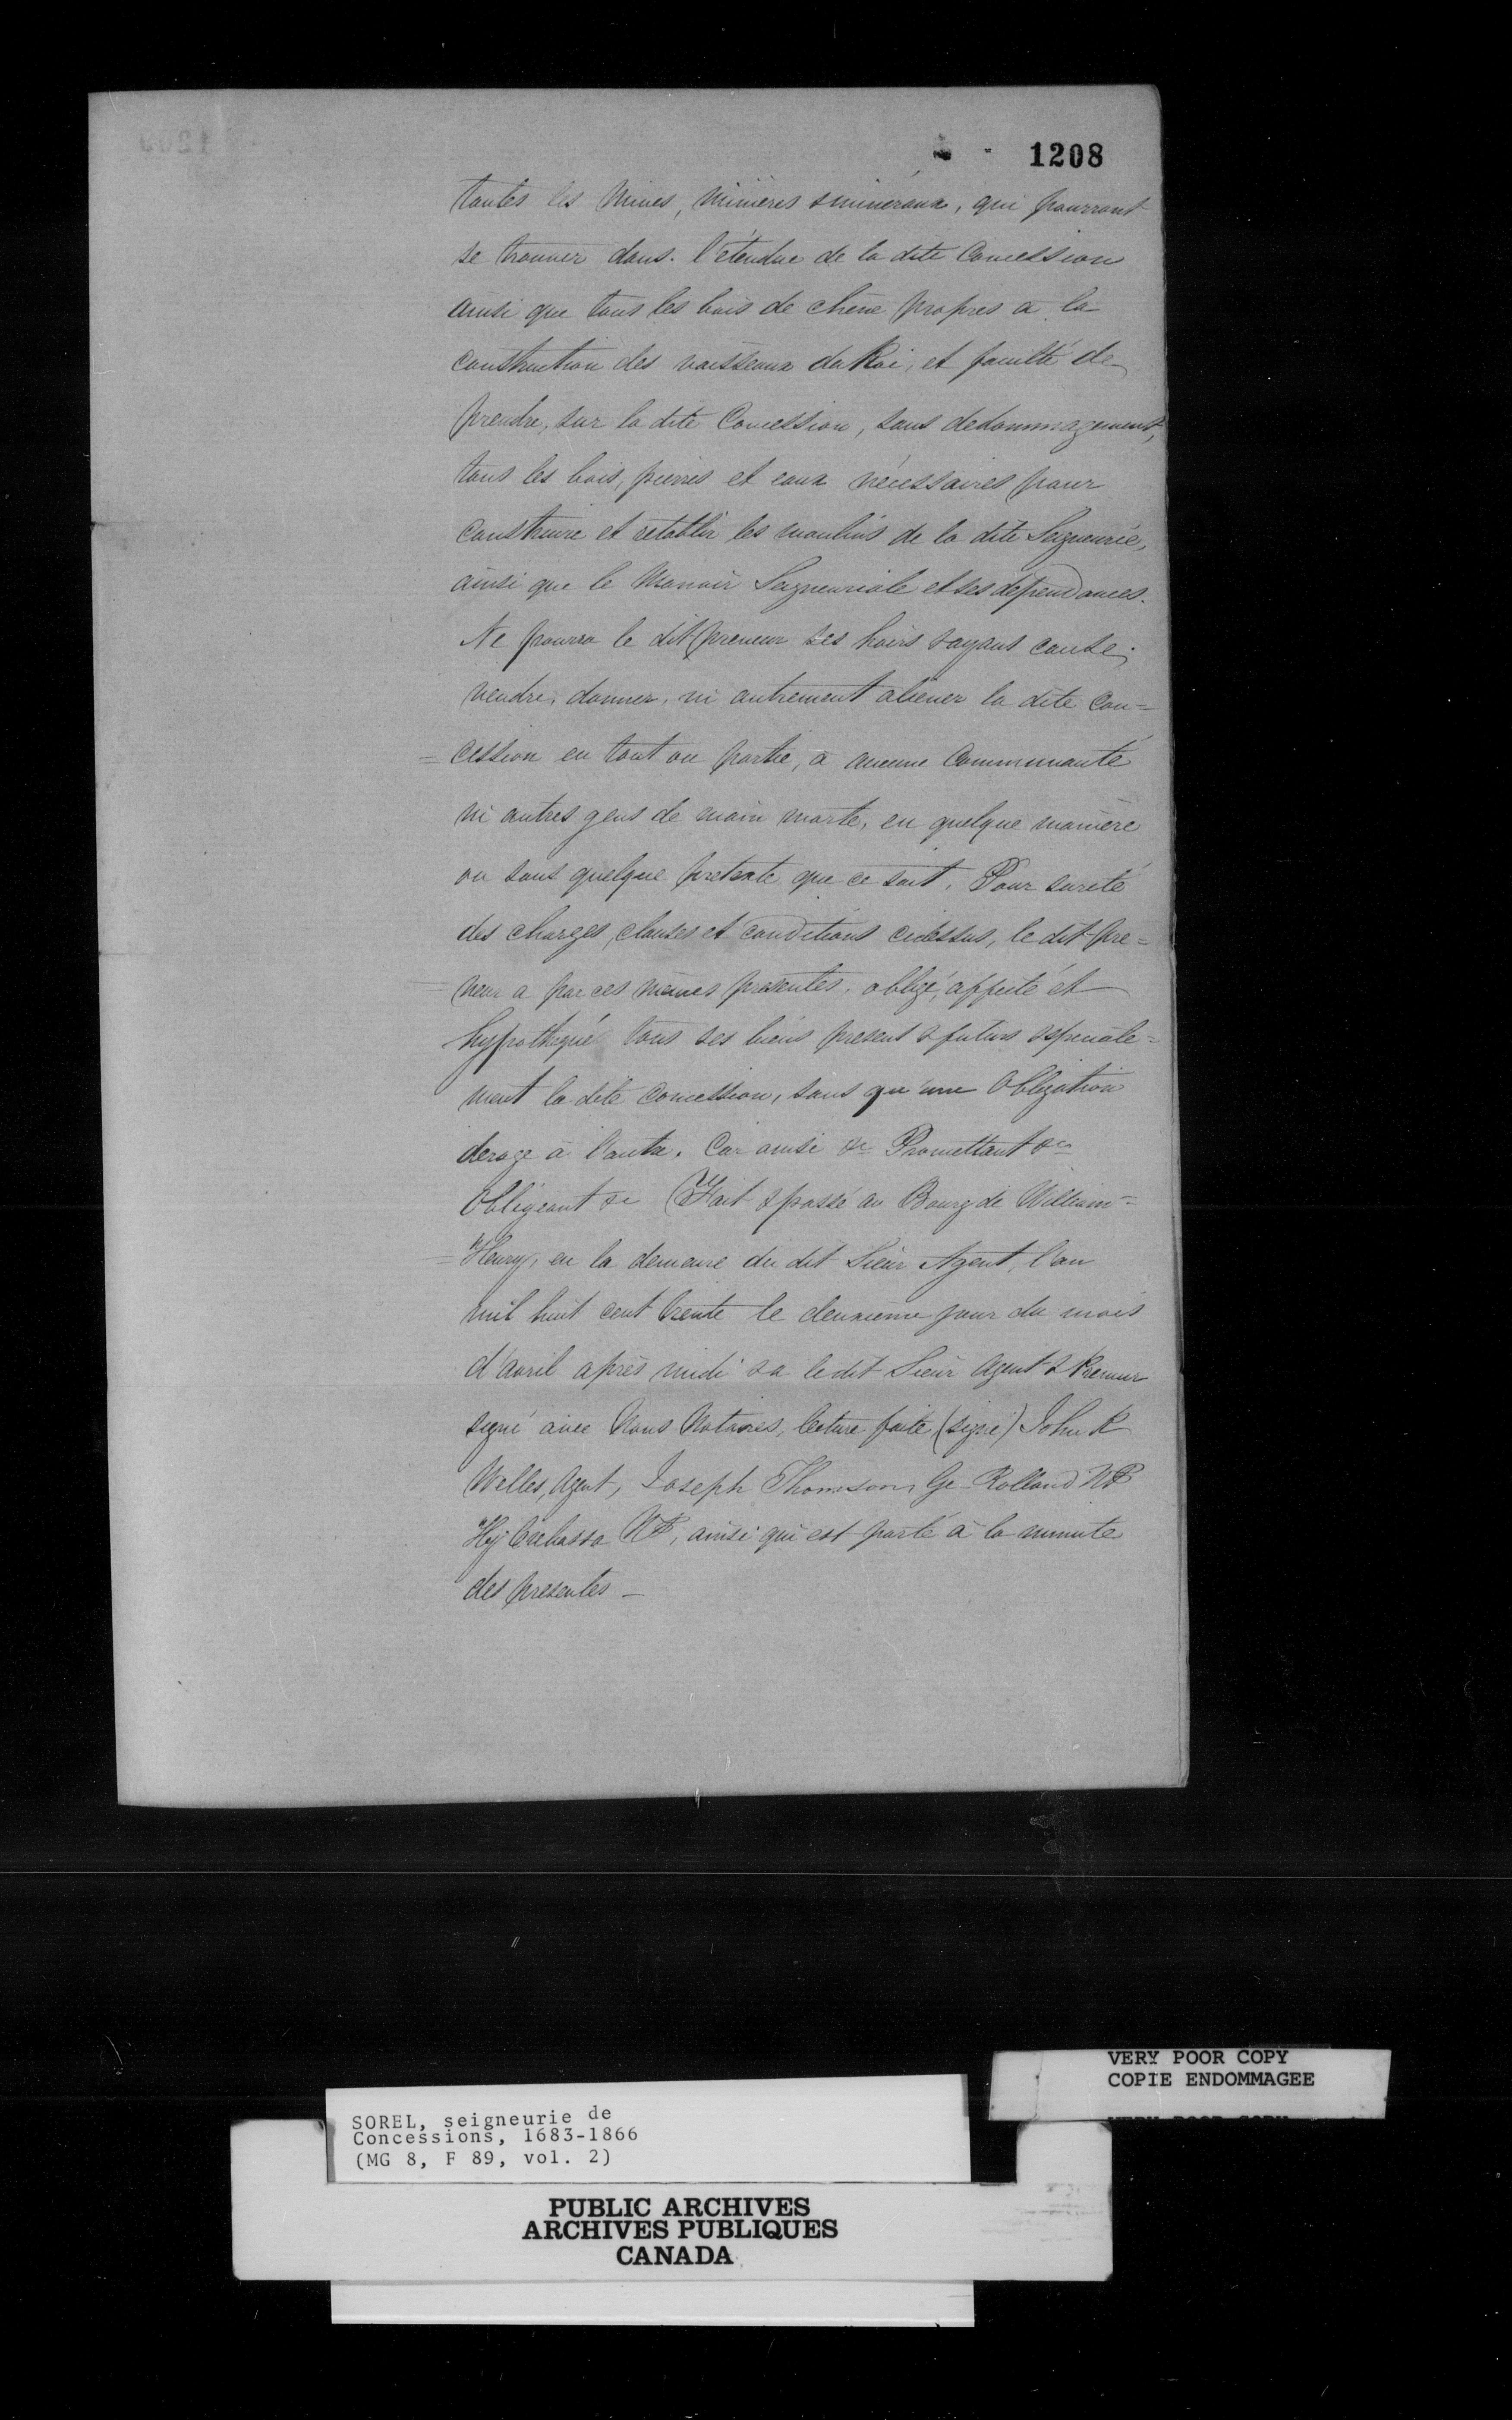 1208
toutes les Mines, Minieres & mineraux, qui pourront
se trouver dans l'étendue de la dite Concession
ainsi que tous les bois de chêne propres a la
construction des vaisseaux du Roi, et faculté de
prendre, sur la dite Concession, sans dedommagement,
tous les bois, pierres et eaux nécessaires pour
construire et rétablir les moulins de la dite Seigneurie,
ainsi que le Manoir Seigneuriale et ses dépendances.
Ne pourra le dit preneur ses hoirs & ayans cause;
vendre, donner, ni autrement aliener la dite Con=
=cession en tout ou partie, à aucune Communauté
ni autres gens de main morte, en quelque manière
ou sous quelque pretexte que ce soit. Pour sureté
des charges, clauses et conditions cidessus, le dit pre=
=neur a par ces mêmes presentes, obligé, affecté et
hypothequé tous ses biens present & futurs & speciale=
ment la dite concession, sans qu'une Obligation
deroge à l'autre. Car ainsi &c Promettant &c
Obligeant &c Fait & passé au Bourg de William=
=Henry, en la demeure du dit Sieur Agent, l'an
mil huit cent trente le deuxieme jour du mois
d'avril après midi & a le dit Sieur Agent & Preneur
signé avec Nous Notaires, lecture faite (signé) John K
Welles, Agent, Joseph Thomson, Ge Rolland NP
Hy Crebassa NP, ainsi qui est porté à la minute
des presentes —
VERY POOR COPY
COPIE ENDOMMAGEE
VERY POOR COPY
SOREL, seigneurie de
Concessions, 1683-1866
(MG 8, F 89, vol. 2)
PUBLIC ARCHIVES
ARCHIVES PUBLIQUES
CANADA